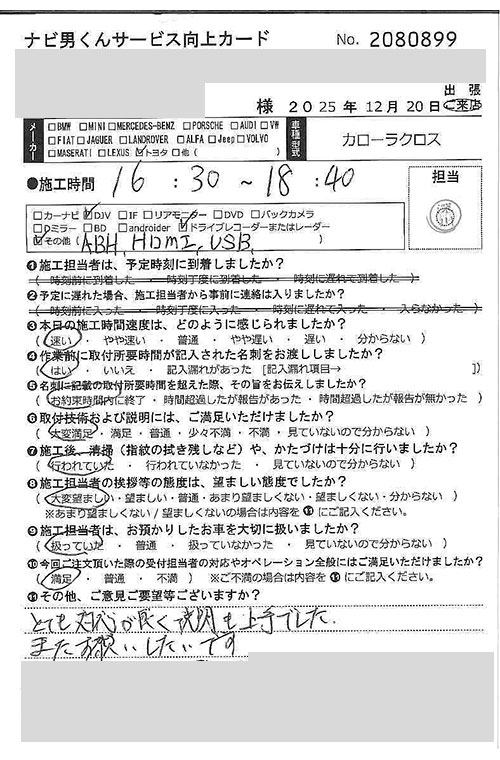 ナビ男くんサービス向上カード No. 2080899
様 2025年12月20日 出張 ご来店
メーカー □BMW □MINI □MERCEDES-BENZ □PORSCHE □AUDI □VW
□FIAT □JAGUER □LANDROVER □ALFA □Jeep □VOLVO
□MASERATI □LEXUS ☑トヨタ □他 ( )
車種型式 カローラクロス
●施工時間 16:30~18:40
担当
□カーナビ ☑DJV □IF □リアモニター □DVD □バックカメラ
□Dミラー □BD □androider ☑ドライブレコーダーまたはレーダー
☑その他 ( ABH, HDMI, USB, )
❶施工担当者は、予定時刻に到着しましたか?
( 時刻前に到着した ・ 時刻丁度に到着した ・ 時刻に遅れて到着した )
❷予定に遅れた場合、施工担当者から事前に連絡は入りましたか?
( 時刻前に入った ・ 時刻丁度に入った ・ 時刻に遅れて入った ・ 入らなかった )
❸本日の施工時間速度は、どのように感じられましたか?
( 速い ・ やや速い ・ 普通 ・ やや遅い ・ 遅い ・ 分からない )
❹作業前に取付所要時間が記入された名刺をお渡ししましたか?
( はい ・ いいえ ・ 記入漏れがあった [記入漏れ項目→ ])
❺名刺に記載の取付所要時間を超えた際、その旨をお伝えしましたか?
( お約束時間内に終了 ・ 時間超過したが報告があった ・ 時間超過したが報告が無かった )
❻取付技術および説明には、ご満足いただけましたか?
( 大変満足 ・ 満足 ・ 普通 ・ 少々不満 ・ 不満 ・ 見ていないので分からない )
❼施工後、清掃(指紋の拭き残しなど)や、かたづけは十分に行いましたか?
( 行われていた ・ 行われていなかった ・ 見ていないので分からない )
❽施工担当者の挨拶等の態度は、望ましい態度でしたか?
( 大変望ましい ・ 望ましい ・ 普通 ・ あまり望ましくない ・ 望ましくない ・ 分からない )
※あまり望ましくない / 望ましくないの場合は内容を⓫にご記入ください。
❾施工担当者は、お預かりしたお車を大切に扱いましたか?
( 扱っていた ・ 普通 ・ 扱っていなかった ・ 見ていないので分からない )
❿今回ご注文頂いた際の受付担当者の対応やオペレーション全般にはご満足いただけましたか?
( 満足 ・ 普通 ・ 不満 ) ※ご不満の場合は内容を⓫にご記入ください。
⓫その他、ご意見ご要望等ございますか?
とても対応が良く説明も上手でした.
またお願いしたいです